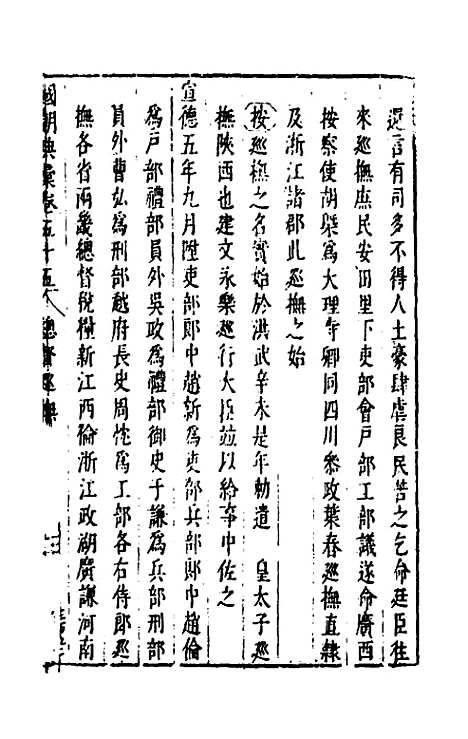 還言有司多不得人土豪肆虐良民苦之乞命廷臣往
來巡撫庶民安田里下吏部會戶部工部議遂命廣西
按察使胡槩為大理寺卿同四川叅政葉春巡撫直隸
及浙江諸郡此巡撫之始
按巡撫之名實始於洪武辛未是年勅遣 皇太子巡
撫陝西也建文永樂巡行大臣並以給事中佐之
宣德五年九月陞吏部郎中趙新為吏部兵部郎中趙倫
為戶部禮部員外吳政為禮部御史于謙為兵部刑部
員外曹弘為刑部越府長史周忱為工部各右侍郎巡
撫各省兩畿總督稅糧新江西倫浙江政湖廣謙河南
國朝典彙卷五十五 總督巡撫